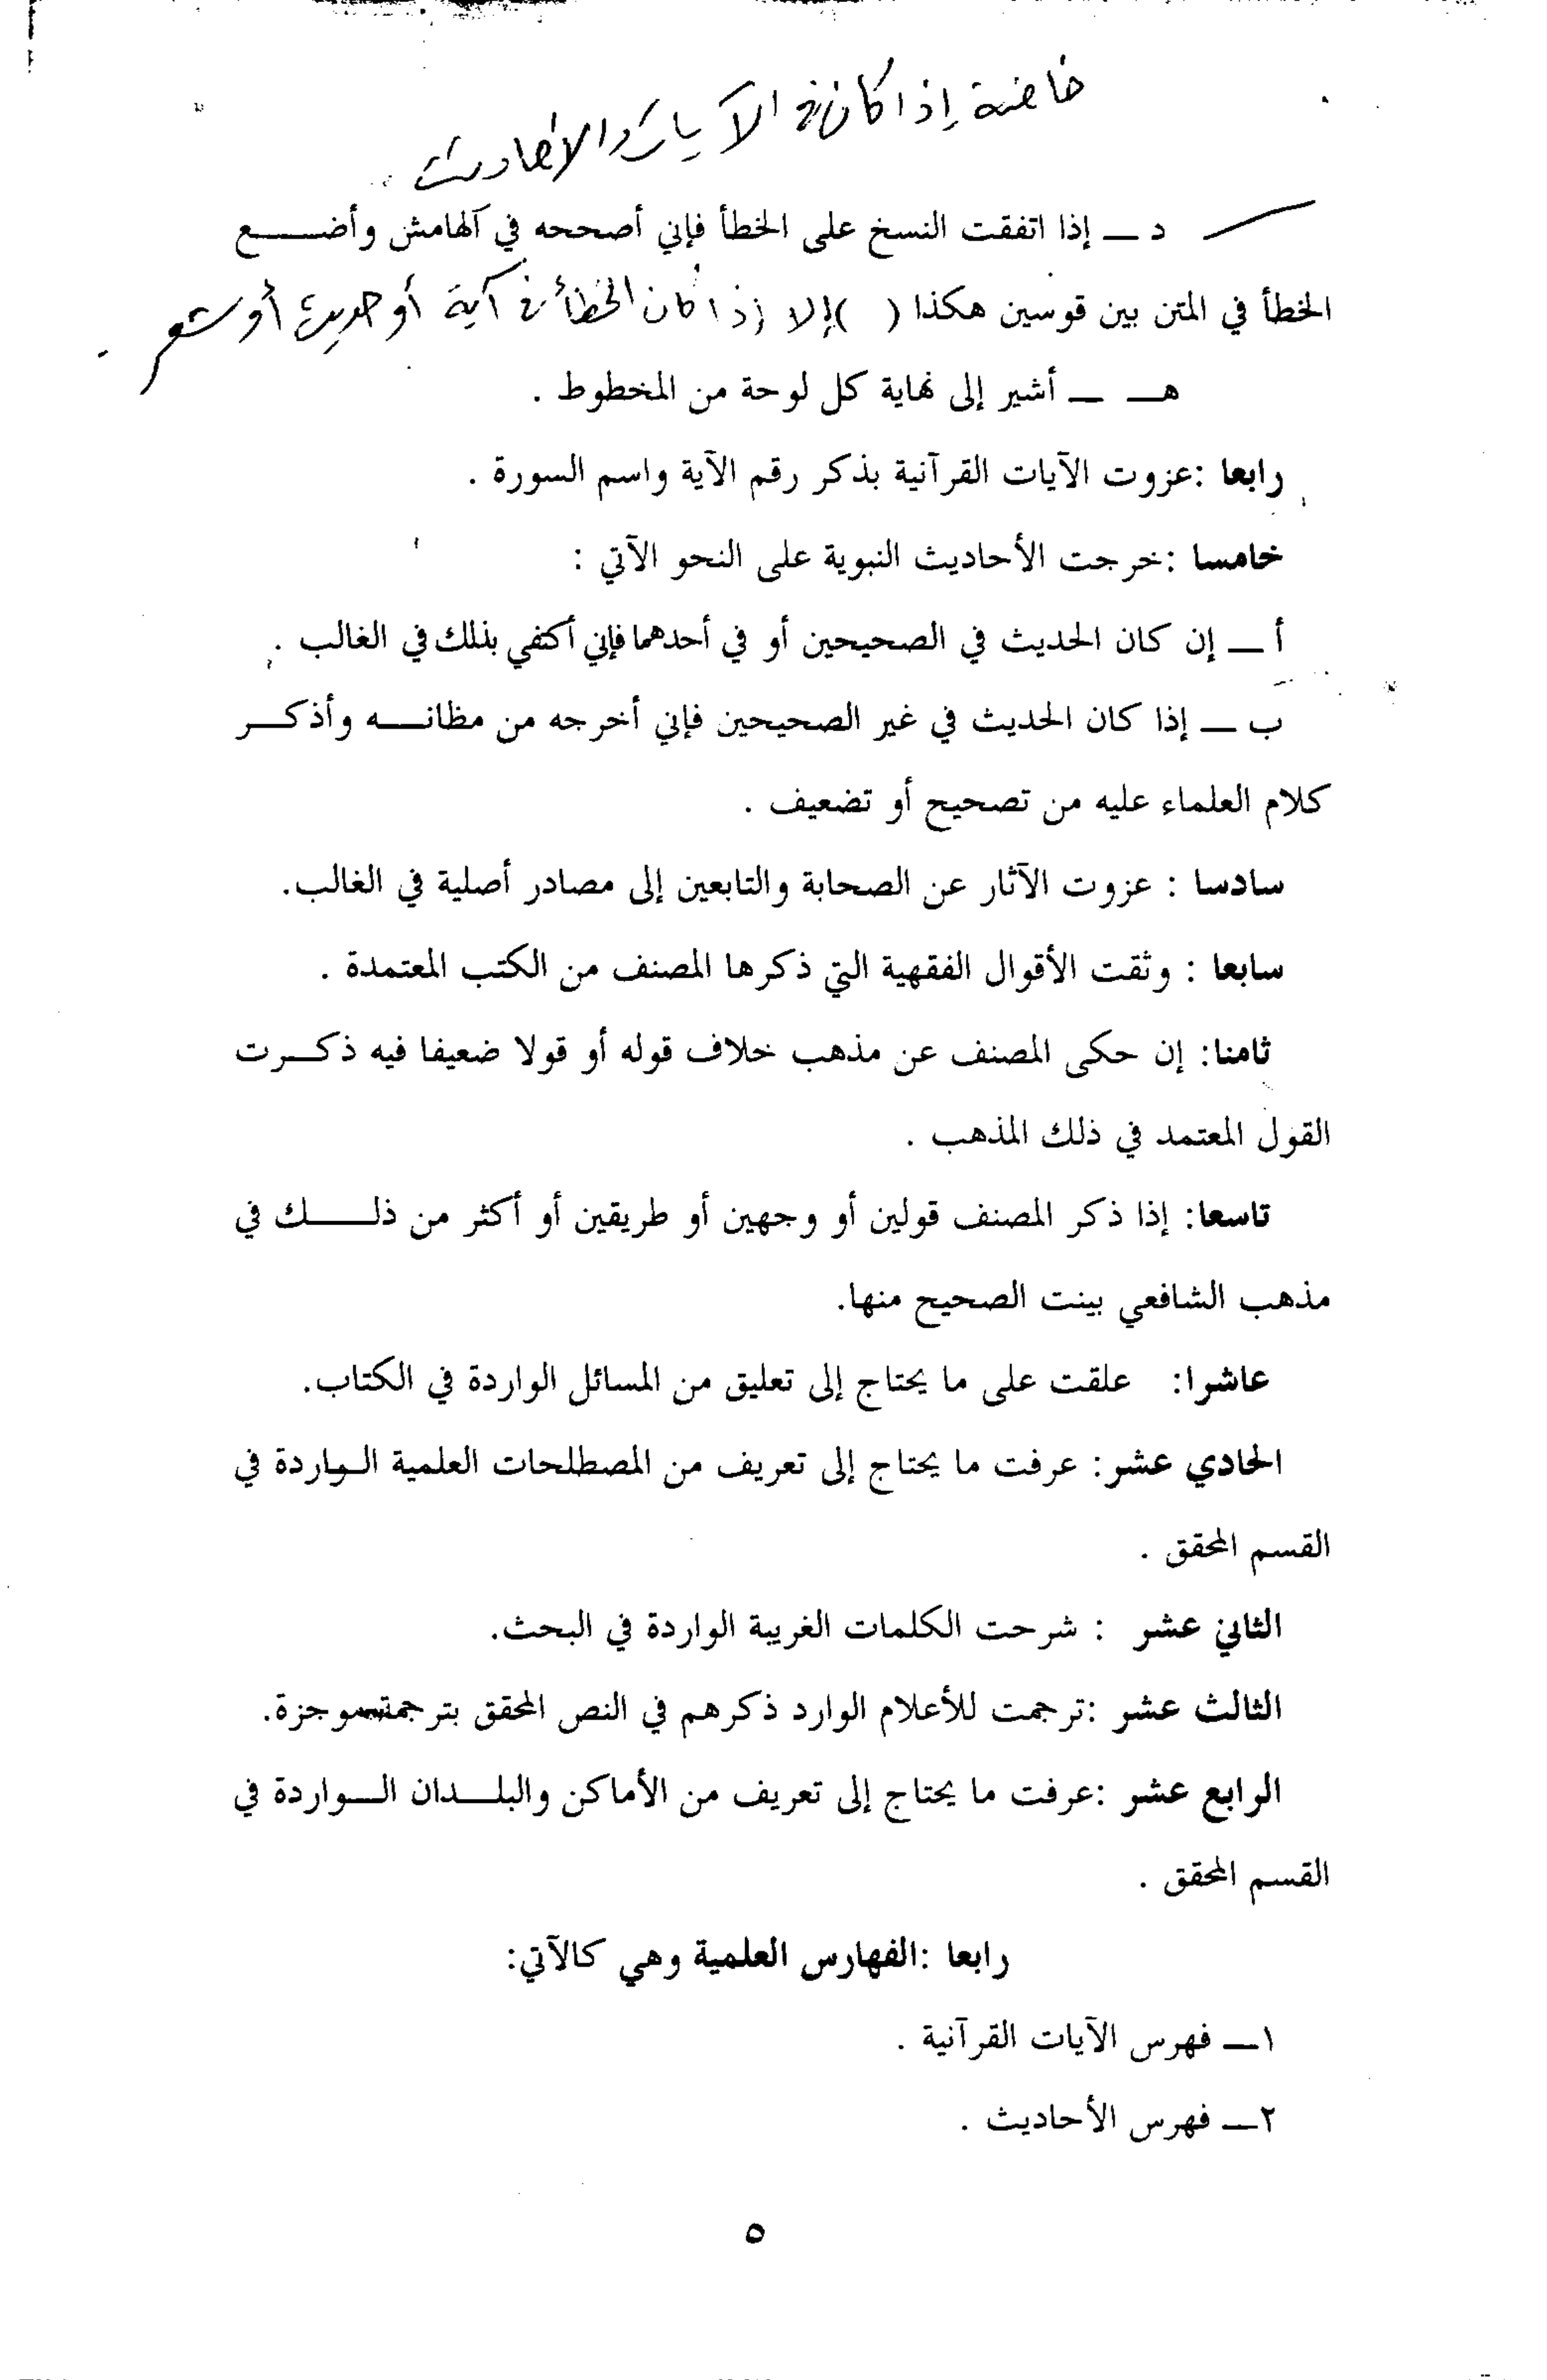 خاصة إذا كان في الآيات والأحاديث
د ــ إذا اتفقت النسخ على الخطأ فإني أصححه في الهامش وأضـــــع
الخطأ في المتن بين قوسين هكذا (   ) إلا إذا كان الخطأ في آية أو حديث أو شعر
هـــ ــ أشير إلى نهاية كل لوحة من المخطوط .
رابعا :عزوت الآيات القرآنية بذكر رقم الآية واسم السورة .
خامسا :خرجت الأحاديث النبوية على النحو الآتي :
أ ــ إن كان الحديث في الصحيحين أو في أحدهما فإني أكتفي بذلك في الغالب .
ب ــ إذا كان الحديث في غير الصحيحين فإني أخرجه من مظانـــه وأذكـــر
كلام العلماء عليه من تصحيح أو تضعيف .
سادسا : عزوت الآثار عن الصحابة والتابعين إلى مصادر أصلية في الغالب.
سابعا : وثقت الأقوال الفقهية التي ذكرها المصنف من الكتب المعتمدة .
ثامنا: إن حكى المصنف عن مذهب خلاف قوله أو قولا ضعيفا فيه ذكـــرت
القول المعتمد في ذلك المذهب .
تاسعا: إذا ذكر المصنف قولين أو وجهين أو طريقين أو أكثر من ذلـــــك في
مذهب الشافعي بينت الصحيح منها.
عاشرا: علقت على ما يحتاج إلى تعليق من المسائل الواردة في الكتاب.
الحادي عشر: عرفت ما يحتاج إلى تعريف من المصطلحات العلمية الـواردة في
القسم المحقق .
الثاني عشر : شرحت الكلمات الغريبة الواردة في البحث.
الثالث عشر :ترجمت للأعلام الوارد ذكرهم في النص المحقق بترجمة موجزة.
الرابع عشر :عرفت ما يحتاج إلى تعريف من الأماكن والبلـــدان الـــواردة في
القسم المحقق .
رابعا :الفهارس العلمية وهي كالآتي:
١ــ فهرس الآيات القرآنية .
٢ــ فهرس الأحاديث .
٥